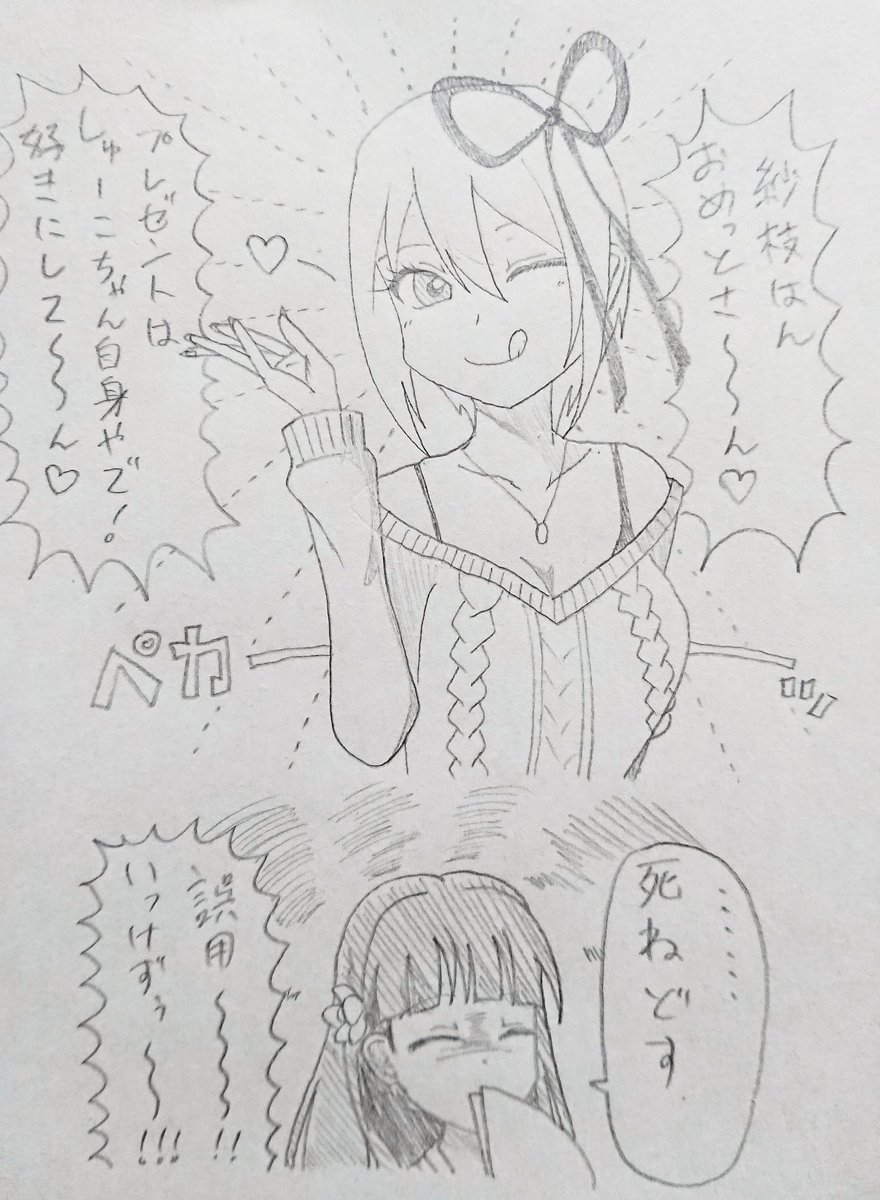 紗枝はん
おめっとさ〜〜ん♡
プレゼントは
しゅーこちゃん自身やで！
好きにして〜〜ん♡
♡
ペカ
ーーッ
‥‥‥
死ねどす
誤用〜〜〜!!
いっけずぅ〜〜!!!